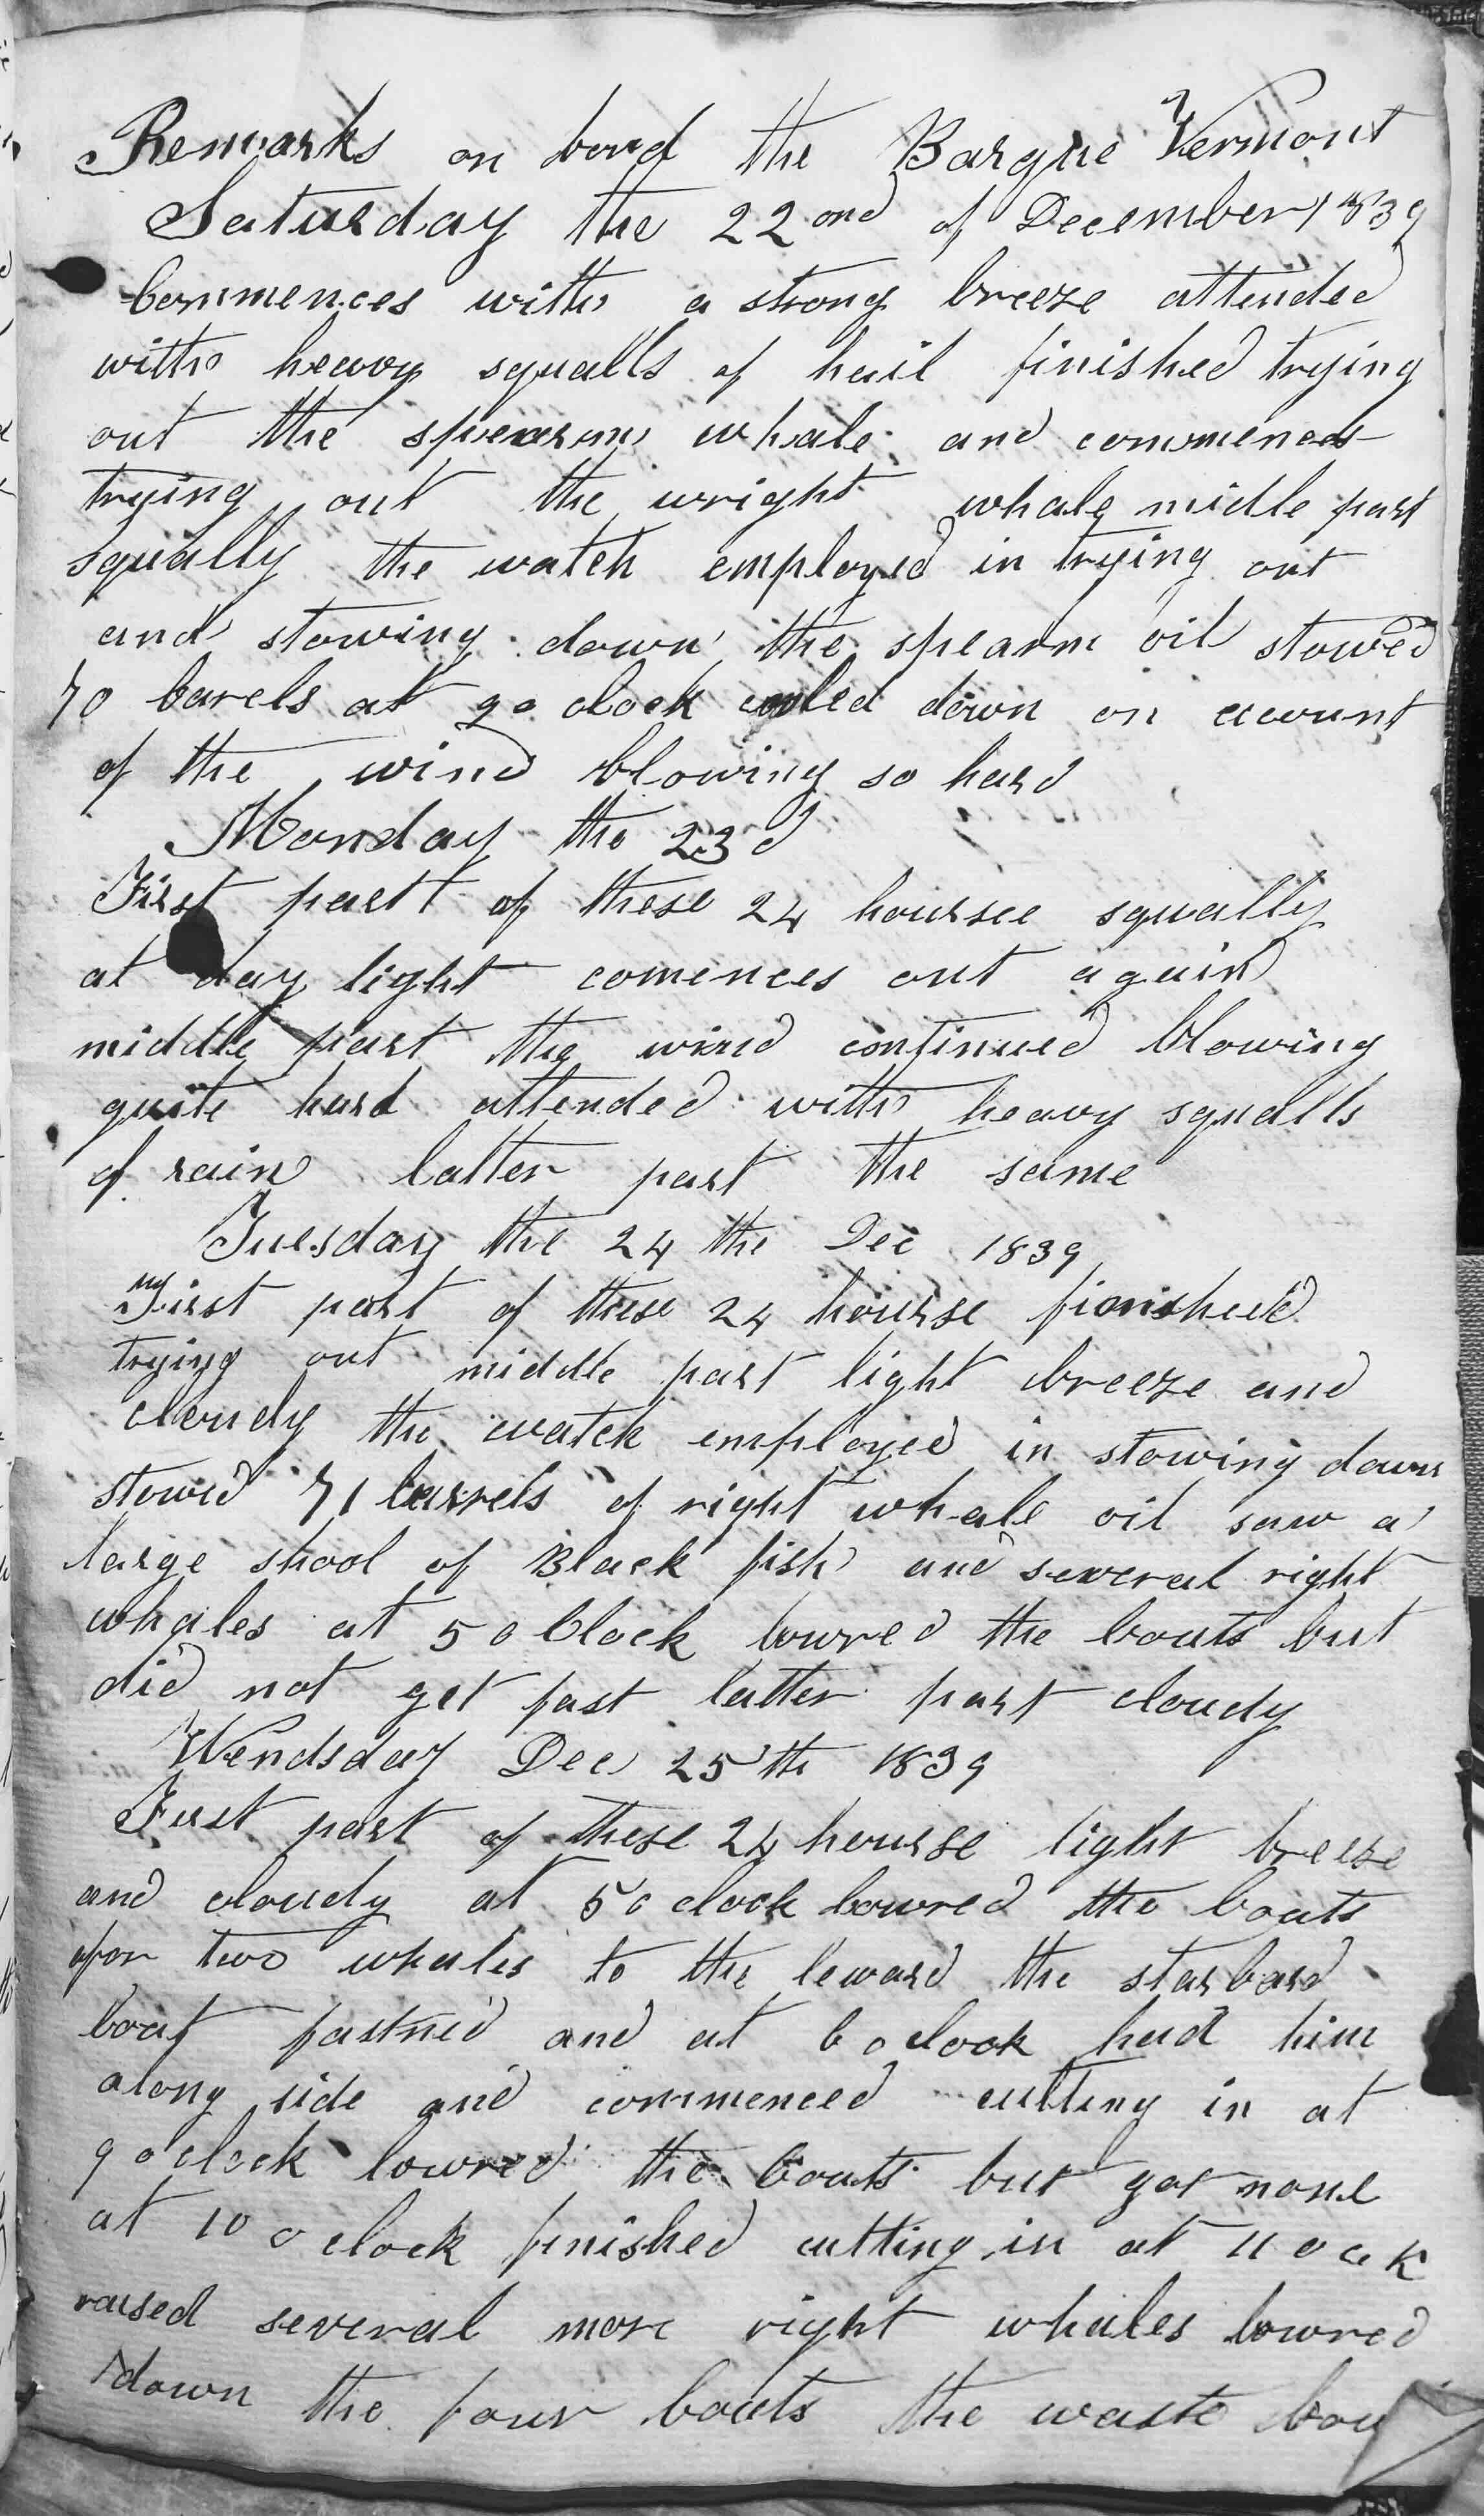 Remarks on bord the Barque Vermont
Saturday the 22ond of December 1839
Commences with a strong breeze attended
with heavy squalls of hail finished trying
out the spearm whale and commences
trying out the wright whale midle part
squally the watch employed in trying out
and stowing down the spearm oil stowed
70 barels at 9 o clock cooled down on acount
of the wind blowing so hard
Monday the 23d
First part of these 24 hoursee squally
at day light comences out again
middle part the wind continued blowing
quite hard attended with heavy squalls
of rain latter part the same
Tuesday the 24 the Dec 1839
First part of these 24 hourse finished
trying out middle part light breeze and
cloudy the watch employed in stowing down
stowed 71 barrels of right whale oil saw a
large shool of Black fish and several right
whales at 5 o Clock lowred the boats but
did not get fast latter part cloudy
Wendsday Dec 25th 1839
First part of these 24 hourse light breeze
and cloudy at 5 o clock lowred the boats
for two whales to the leward the starbard
boat fastned and at 6 o clook had him
along side and commenced cutting in at
9 o clock lowred the boats but got none
at 10 o clock finished cutting in at 11 o
raised several more right whales lowred
down the four boats the waste